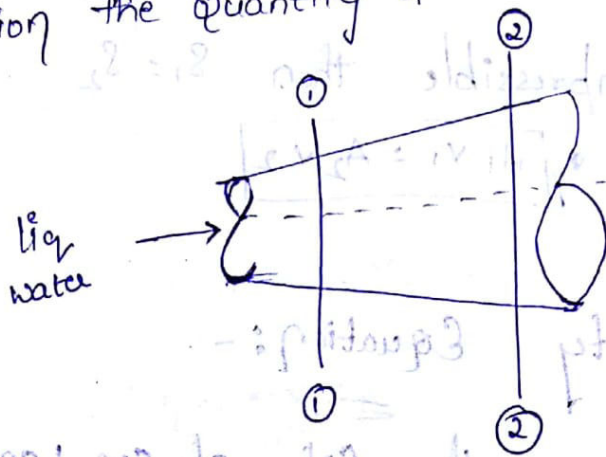 ion the quantity
②
①
liq
water
①
②